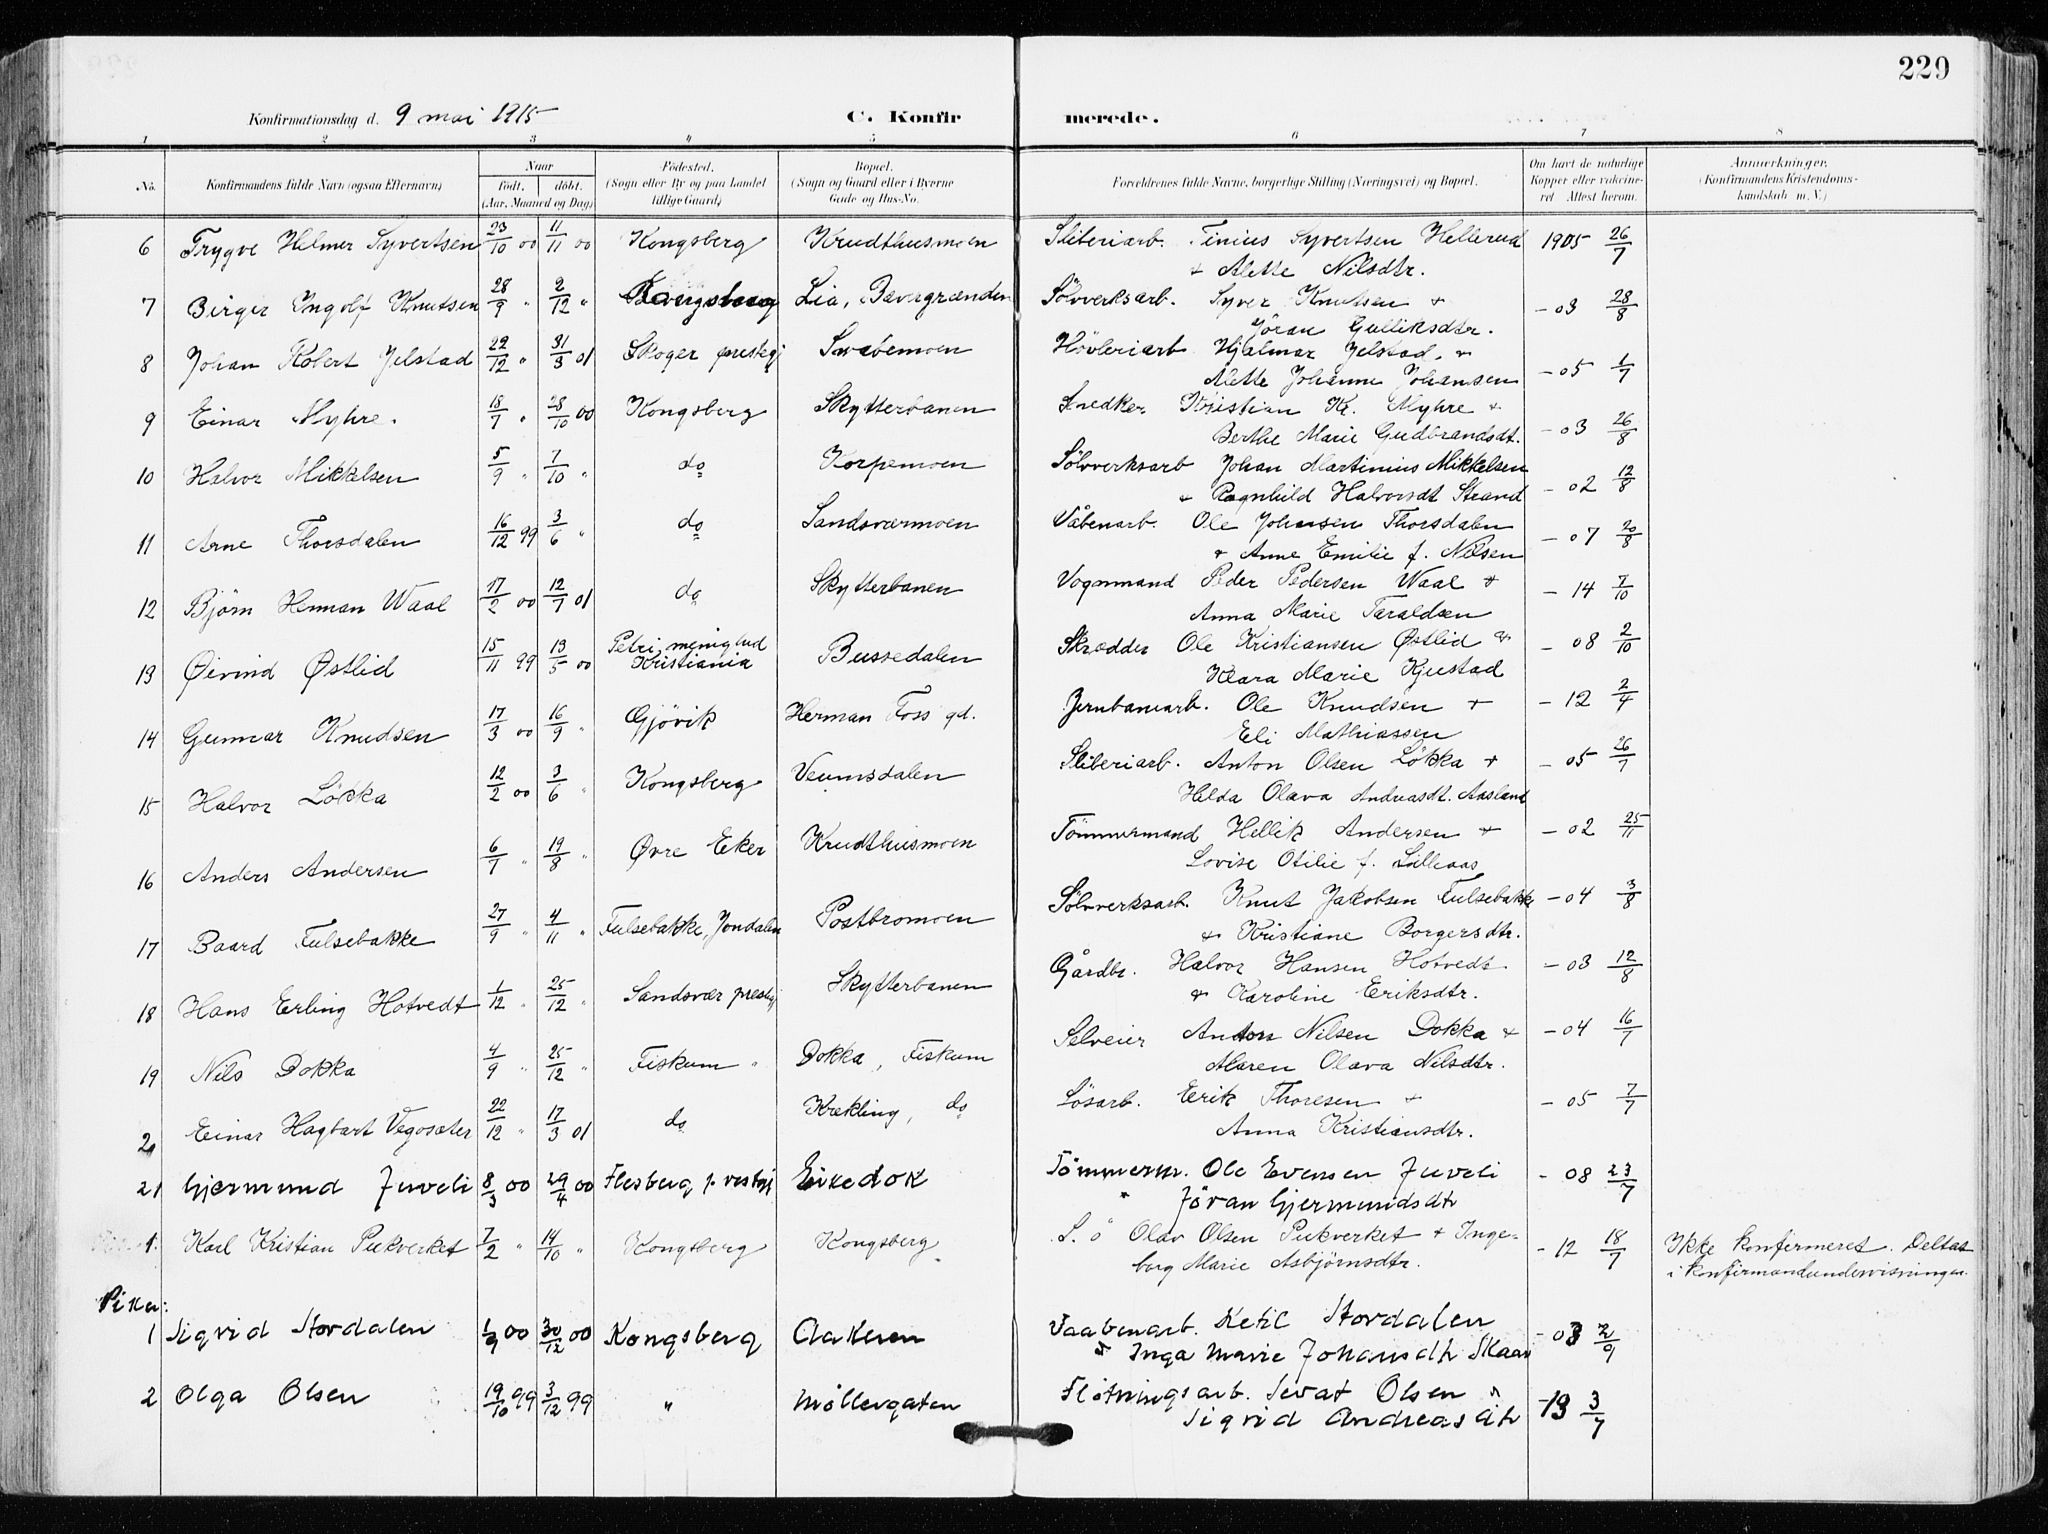 229
Konfirmationsdag d. 9 mai 1915 C. Konfirmerede.
1 2 3 4 5 6 7 8
No. Konfirmandens fulde Navn (ogsaa Efternavn) Naar født. døbt. (Aar, Maaned og Dag) Fødested. (Sogn eller By og paa Landet tillige Gaard) Bopæl. (Sogn og Gaard eller i Byerne Gade og Hus-No. Forældrenes fulde Navne, borgerlige Stilling (Næringsvei) og Bopæl. Om havt de naturlige Kopper eller vakcineret. Attest herom. Anmærkninger. (Konfirmandens Kristendomskundskab m. V.)
6 Trygve Helmer Syvertsen 23/10 00 11/11 00 Kongsberg Krudthusmoen Sliberiarb. Tinius Syvertsen Hellerud 1905 26/7
+ Alette Nilsdtr.
7 Birger Ingolf Knutsen 28/9 " 2/12 " Kongsberg Lia, Bævergrænden Sölvverksarb. Syver Knutsen + - 03 28/8
Jöran Gulliksdtr.
8 Johan Robert Jelstad 22/12 " 31/3 01 Skoger prestegj Svabemoen Hövleriarb Hjalmar Jelstad + - 05 1/7
Alette Johanne Johansen
9 Einar Myhre. 18/7 " 28/10 00 Kongsberg Skytterbanen Snedker Kristian Kr. Myhre + - 03 26/8
Berthe Marie Gudbrandsdt.
10 Halvor Mikkelsen 5/9 " 7/10 " do Korpemoen Sölvverksarb Johan Martinius Mikkelsen - 02 12/8
+ Ragnhild Halvorsdt Strand
11 Arne Thorsdalen 16/12 99 3/6 " do Sandsværmoen Våbenarb. Ole Johansen Thorsdalen - 07 20/8
+ Anne Emilie f. Nilsen
12 Björn Herman Waal 17/2 00 12/7 01 do Skytterbanen Vognmand Peder Pedersen Waal + - 14 7/10
Anna Marie Taraldsen
13 Øivind Østlid 15/11 99 13/5 00 Petri menighed Kristiania Bussedalen Skrædder Ole Kristiansen Østlid + - 08 2/10
Klara Marie Kjustad
14 Gunnar Knudsen 17/3 00 16/9 " Gjövik Herman Foss gd. Jernbanearb. Ole Knudsen + - 12 2/4
Eli Mathiassen
15 Halvor Lökka 12/2 00 3/6 " Kongsberg Veumsdalen Sliberiarb. Anton Olsen Lökka + - 05 26/7
Hilda Olava Andreasdt. Aasland
16 Anders Andersen 6/7 " 19/8 " Øvre Eker Krudthusmoen Tömmermand Hellik Andersen + - 02 25/11
Lovise Otilie f. Lilleaas
17 Baard Fulsebakke 27/9 " 4/11 " Fulsebakke, Jondalen Postbromoen Sölvverksarb. Knut Jakobsen Fulsebakke - 04 3/8
+ Kristiane Borgersdtr.
18 Hans Erling Hotvedt 1/12 " 25/12 " Sandsvær prestgj Skytterbanen Gårdbr. Halvor Hansen Hotvedt - 03 12/8
+ Karoline Eriksdtr.
19 Nils Dokka 4/9 " 25/12 " Fiskum " Dokka, Fiskum Selveier Anton Nilsen Dokka + - 04 16/7
Maren Olava Nilsdtr.
20 Einar Hagbart Vegosæter 22/12 " 17/3 01 do Krekling, do Lösarb. Erik Thoresen + - 05 7/7
Anna Kristiansdtr.
21 Gjermund Juveli 8/3 00 29/4 00 Flesberg prestgj Eikedok Tömmerm. Ole Evensen Juveli - 08 23/7
" Jöran Gjermundsdtr
1. Karl Kristian Pukverket 7/2 " 14/10 " Kongsberg Kongsberg S. ö Olav Olsen Pukverket + Inge- - 12 18/7 Ikke konfirmeret. Deltat
borg Marie Asbjörnsdtr. i konfirmandundervisningen.
Piker:
1 Sigrid Stordalen 1/9 00 30/12 00 Kongsberg Aakeren Vaabenarb. Ketil Stordalen - 03 2/9
+ Inga Marie Johansdtr Skaar
2 Olga Olsen 19/10 99 3/12 99 " Møllergaten Flötningsarb. Sevat Olsen + - 13 3/7
Sigrid Andreasdtr